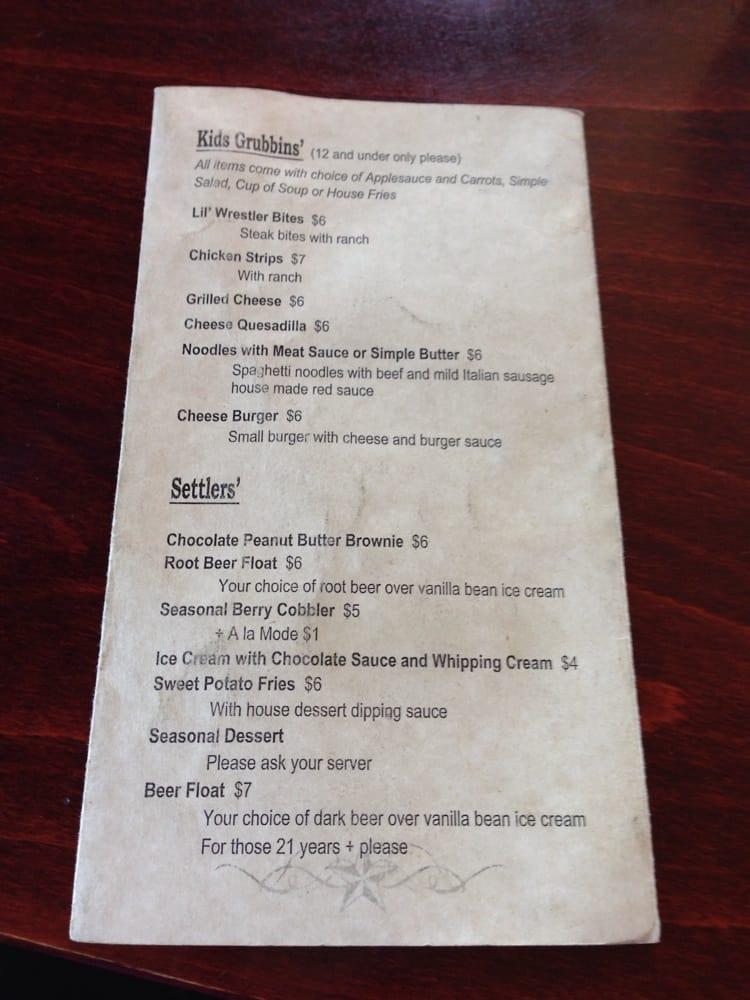 Kids Grubbins' (12 and under only please)
All items come with choice of Applesauce and Carrots, Simple
Salad, Cup of Soup or House Fries
Lil' Wrestler Bites $6
Steak bites with ranch
Chicken Strips $7
With ranch
Grilled Cheese $6
Cheese Quesadilla $6
Noodles with Meat Sauce or Simple Butter $6
Spaghetti noodles with beef and mild Italian sausage
house made red sauce
Cheese Burger $6
Small burger with cheese and burger sauce
Settlers'
Chocolate Peanut Butter Brownie $6
Root Beer Float $6
Your choice of root beer over vanilla bean ice cream
Seasonal Berry Cobbler $5
+ A la Mode $1
Ice Cream with Chocolate Sauce and Whipping Cream $4
Sweet Potato Fries $6
With house dessert dipping sauce
Seasonal Dessert
Please ask your server
Beer Float $7
Your choice of dark beer over vanilla bean ice cream
For those 21 years + please